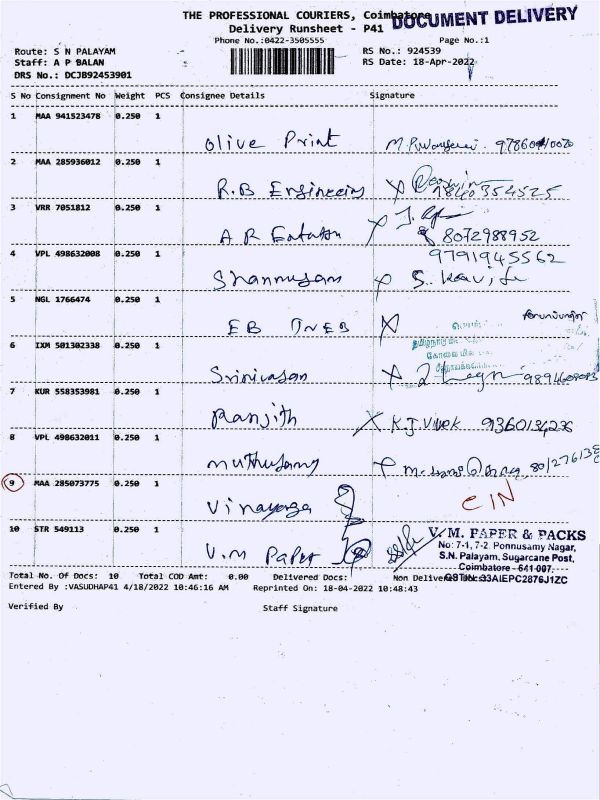 THE PROFESSIONAL COURIERS, Coimbatore
DOCUMENT DELIVERY
Delivery Runsheet - P41
Phone No.:0422-3505555
Page No.:1
Route: S N PALAYAM
RS No.: 924539
Staff: A P BALAN
RS Date: 18-Apr-2022
DRS No.: DCJB92453901
S No Consignment No Weight PCS Consignee Details Signature
1 MAA 941523478 0.250 1
Olive Print
2 MAA 285936012 0.250 1
R.B Engineering
3 VRR 7051812 0.250 1
A R
8072988952
4 VPL 498632008 0.250 1
9791945562
S. Kavi
5 NGL 1766474 0.250 1
EB TNEB
6 IXM 501302338 0.250 1
Srinivasan
7 KUR 558353981 0.250 1
Ranjith K.J. Vivek
8 VPL 498632011 0.250 1
Muthusamy
9 MAA 285073775 0.250 1
Vinayaga
10 STR 549113 0.250 1
V.M Paper
V. M. PAPER & PACKS
No: 7-1, 7-2, Ponnusamy Nagar,
S.N. Palayam, Sugarcane Post,
Coimbatore - 641 007.
GSTIN: 33AIEPC2876J1ZC
Total No. Of Docs: 10 Total COD Amt: 0.00 Delivered Docs: Non Delivered Docs:
Entered By :VASUDHAP41 4/18/2022 10:46:16 AM Reprinted On: 18-04-2022 10:48:43
Verified By Staff Signature